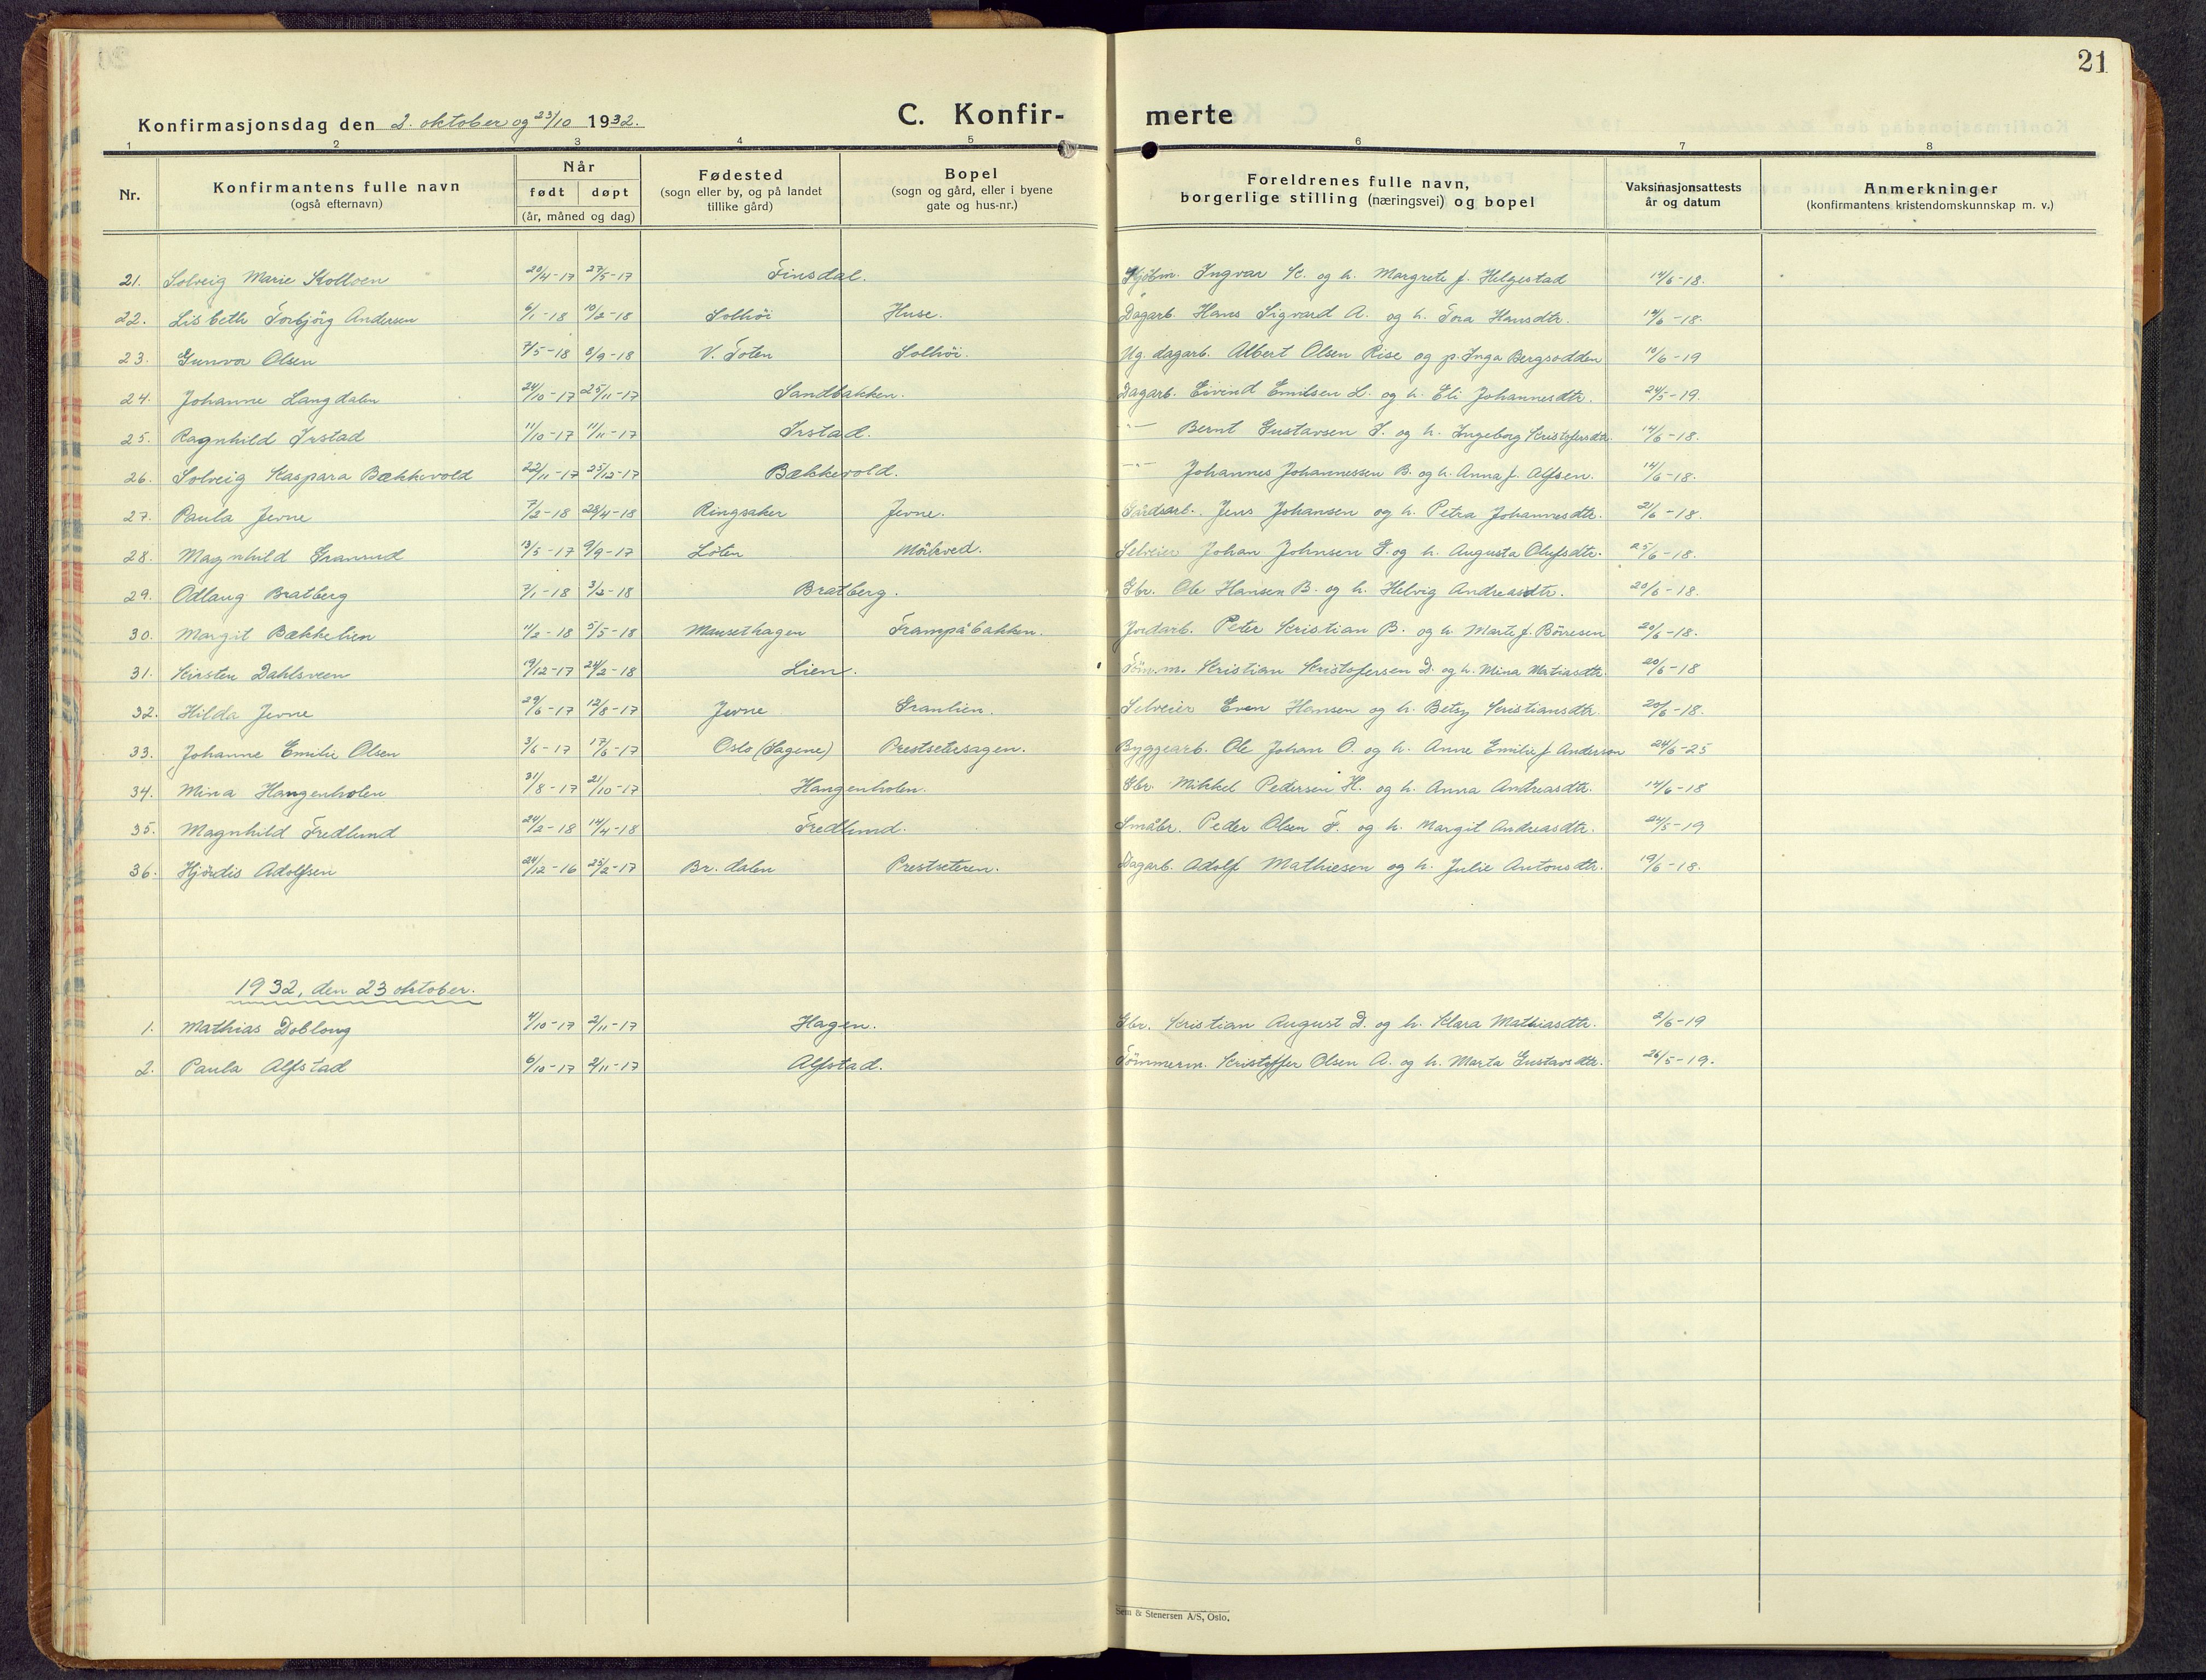 21
Konfirmasjonsdag den 2. oktober og 23/10 1932. C. Konfirmerte
1 2 3 4 5 6 7 8
Nr. Konfirmantens fulle navn (også efternavn) Når født døpt (år, måned og dag) Fødested (sogn eller by, og på landet tillike gård) Bopel (sogn og gård, eller i byene gate og hus-nr.) Foreldrenes fulle navn, borgerlige stilling (næringsvei) og bopel Vaksinasjonsattests år og datum Anmerkninger (konfirmantens kristendomskunnskap m. v.)
21. Solveig Marie Kolloen 20/4-17 27/5-17 Finsdal. Kjøbm. Ingvar K. og h. Margrete f. Helgestad 14/6-18.
22. Lisbeth Torbjörg Andersen 6/1-18 10/2-18 Solhöi Huse. Dagarb. Hans Sigvard A. og h. Tora Hansdtr. 14/6-18.
23. Gunvor Olsen 7/5-18 8/9-18 V. Toten Solhöi. Ug. dagarb. Albert Olsen Rise og p. Inga Bergsodden 10/6-19
24. Johanne Langdalen 24/10-17 25/11-17 Sandbakken. Dagarb. Eivind Emilsen L. og h. Eli Johannesdtr. 24/5-19.
25. Ragnhild Irstad 11/10-17 11/11-17 Irstad. -"- Bernt Gustavsen I. og h. Ingeborg Kristofersdtr. 14/6-18.
26. Solveig Kaspara Bækkevold 22/11-17 25/12-17 Bækkevold. -"- Johannes Johannessen B. og h. Anna f. Alfsen. 14/6-18.
27. Paula Jevne 7/2-18 28/4-18 Ringsaker Jevne. Gårdsarb. Jens Johansen og h. Petra Johannesdtr. 21/6-18.
28. Magnhild Granrud 13/5-17 9/9-17 Löten Mörkved. Selveier Johan Johnsen G. og h. Augusta Olufsdtr. 25/6-18.
29. Odlaug Bratberg 7/1-18 3/2-18 Bratberg. Gbr. Ole Hansen B. og h. Helvig Andreasdtr. 20/6-18.
30. Margit Bækkelien 11/2-18 5/5-18 Mausethagen Frampåbakken. Jordarb. Peter Kristian B. og h. Marte f. Börresen 20/6-18.
31. Kirsten Dahlsveen 19/12-17 24/2-18 Lien. Töm.m. Kristian Kristofersen D. og h. Mina Matiasdtr. 20/6-18
32. Hilda Jevne 29/6-17 12/8-17 Jevne Granlien. Selveier Even Hansen og h. Betsy Kristiansdtr. 20/6-18.
33. Johanne Emilie Olsen 3/6-17 17/6-17 Oslo (Sagene) Prestsetersagen. Byggearb. Ole Johan O. og h. Anne Emilie f. Anderson 24/6-25
34. Mina Haugenholen 31/8-17 21/10-17 Haugenholen. Gbr. Mikkel Pedersen H. og h. Anna Andreasdtr. 14/6-18
35. Magnhild Fredlund 24/2-18 14/4-18 Fredlund. Småbr. Peder Olsen F. og h. Margit Andreasdtr. 24/5-19
36. Hjördis Adolfsen 24/12-16 25/2-17 Br. dalen Prestseteren. Dagarb. Adolf Mathiesen og h. Julie Antonsdtr. 19/6-18.
1932, den 23 oktober.
1. Mathias Dobloug 4/10-17 2/11-17 Hagen. Gbr. Kristian August D. og h. Klara Mathiasdtr. 2/6-19
2. Paula Alfstad 6/10-17 2/11-17 Alfstad. Tömmerm. Kristoffer Olsen A. og h. Marta Gustavsdtr. 26/5-19.
Sem & Stenersen A/S, Oslo.